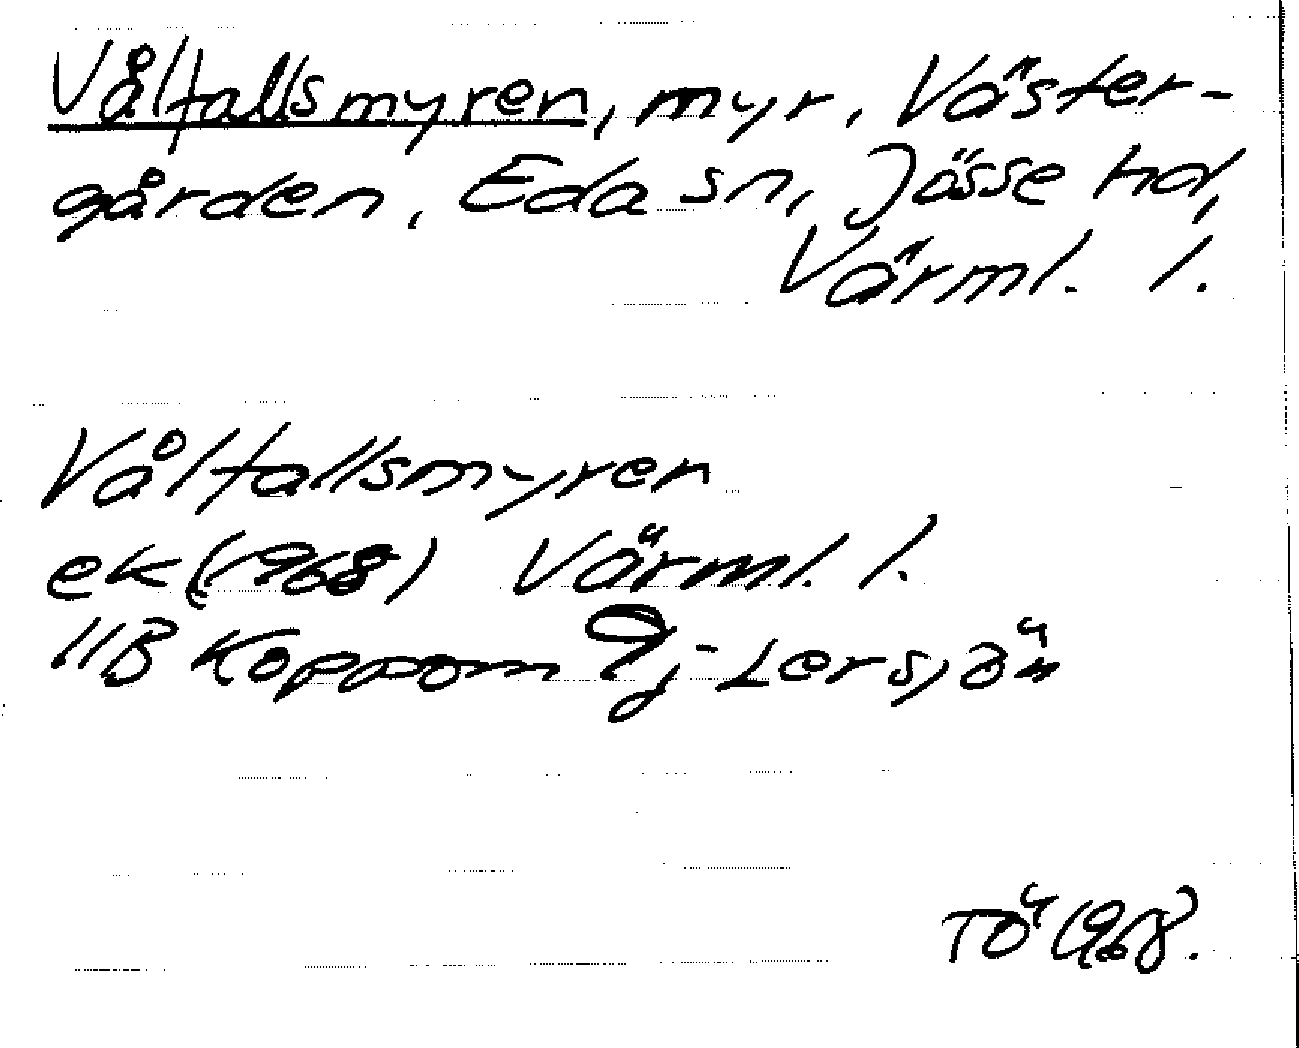 Våltallsmyren, myr, Väster-
gården, Eda sn, Jösse hd,
Värml. l.
Våltallsmyren
ek (1968) Värml. l.
11B Koppom 9j - Lersjön
TÖ 1968.